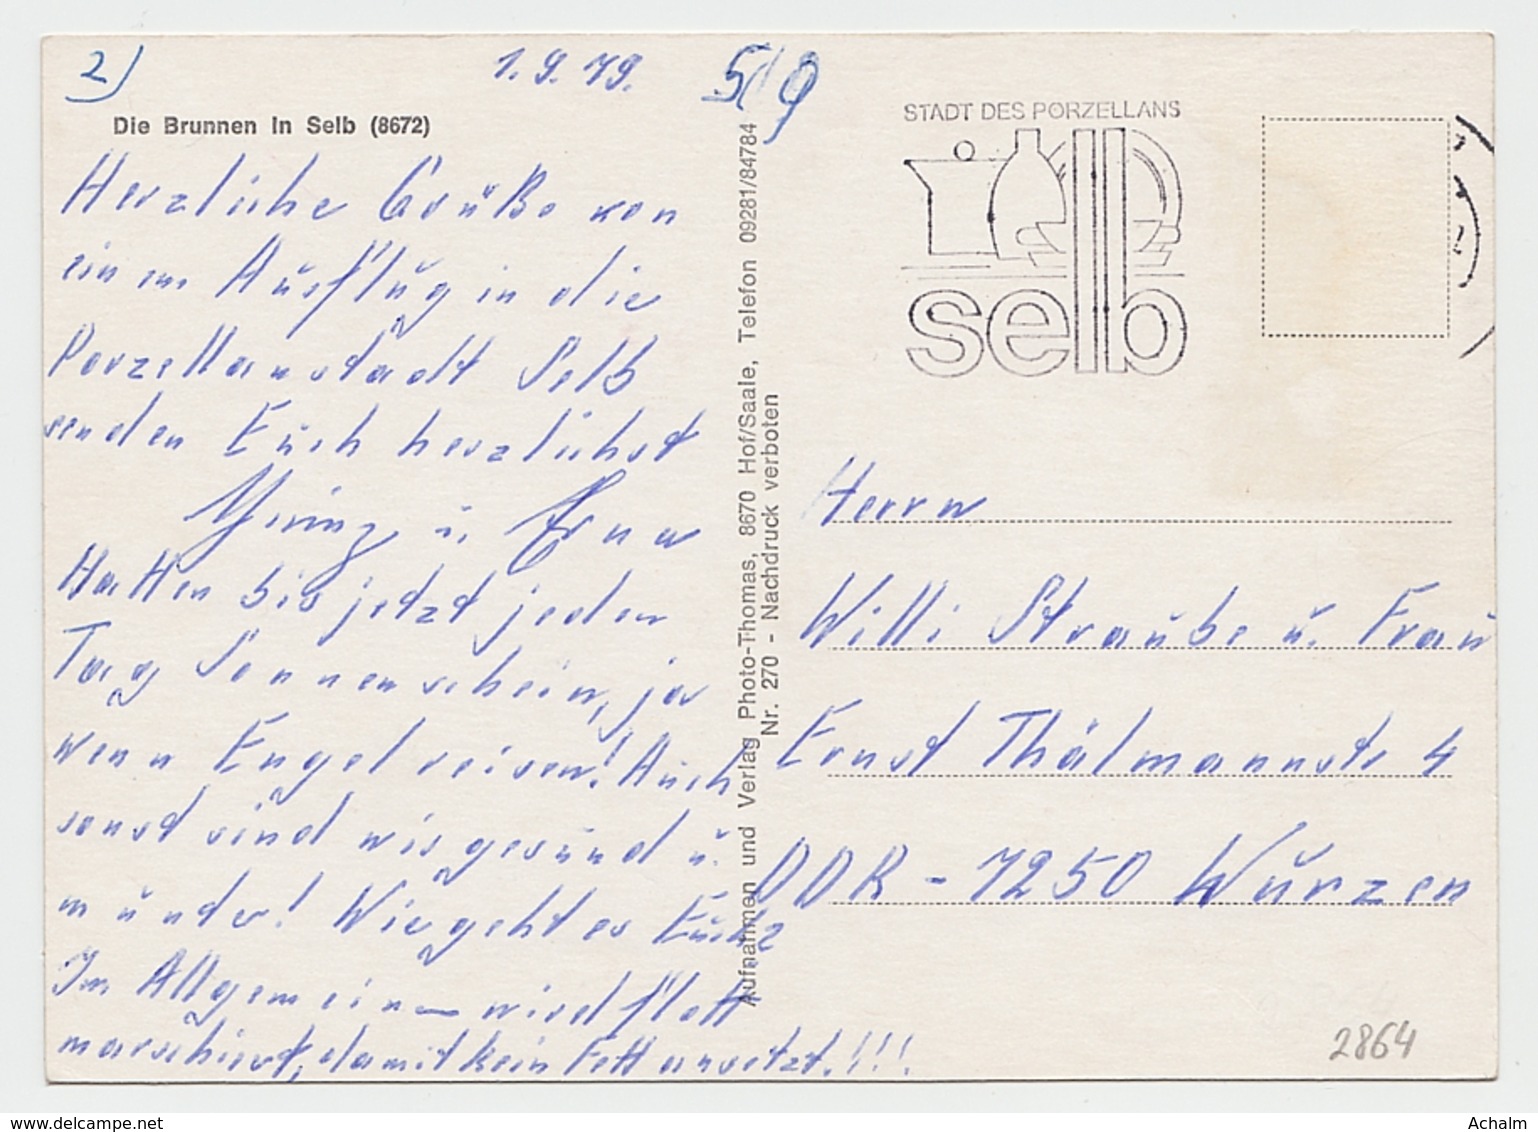 2)
1.9.79.
5/9
Die Brunnen in Selb (8672)
Herzliche Grüße von
einem Ausflug in die
Porzellanstadt Selb
senden Euch herzlichst
u. Erna
Hatten bis jetzt jeden
Tag Sonnenschein, ja
wenn Engel reisen! Auch
sonst sind wir gesund u.
munter! Wie geht es Euch?
Im Allgemein wird flott
marschiert, damit kein Fett ansetzt.!!!
Aufnahmen und Verlag Photo-Thomas, 8670 Hof/Saale, Telefon 09281/84784
Nr. 270 - Nachdruck verboten
STADT DES PORZELLANS
selb
Herrn
Willi Straube u. Frau
Ernst Thälmannstr 4
DDR - 7250 Wurzen
2864
www.delcampe.net
Achalm